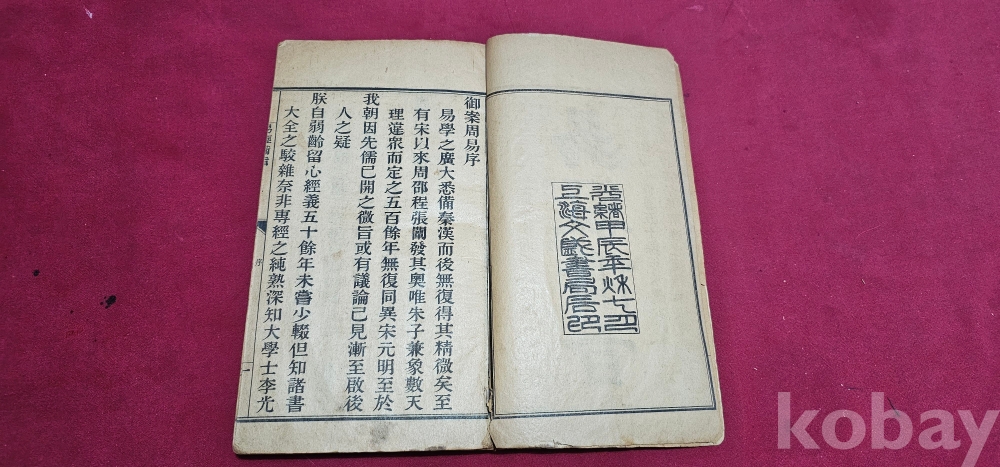 光緒甲辰年秋七月
上海文書局石印
御案周易序
易學之廣大悉備秦漢而後無復得其精微矣至
有宋以來周邵程張闡發其奧唯朱子兼象數天
理違衆而定之五百餘年無復同異宋元明至於
我朝因先儒已開之微旨或有議論己見漸至啟後
人之疑
朕自弱齡留心經義五十餘年未嘗少輟但知諸書
大全之駮雜奈非專經之純熟深知大學士李光
序
一
kobay